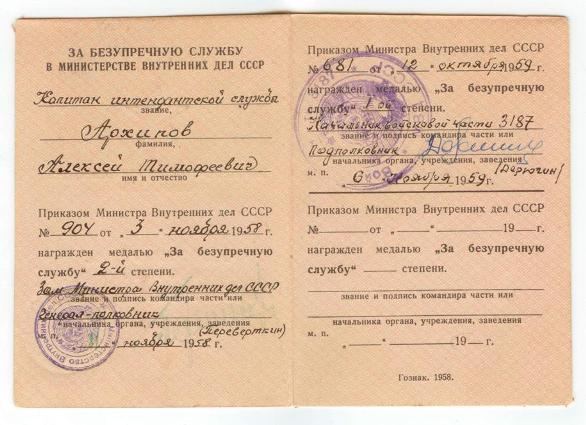 ЗА БЕЗУПРЕЧНУЮ СЛУЖБУ
В МИНИСТЕРСТВЕ ВНУТРЕННИХ ДЕЛ СССР
Капитан интендантской служба
звание,
Архипов
фамилия,
Алексей Тимофеевич
имя и отчество
Приказом Министра Внутренних дел СССР
№ 904 от „3" ноября 1958 г.
награжден медалью „За безупречную
службу" 2-й степени.
Зам. Министра Внутренних дел СССР
звание и подпись командира части или
Генерал-полковник
начальника органа, учреждения, заведения
(Переверткин)
м. п. ноября 1958 г.
Приказом Министра Внутренних дел СССР
№ 681 от „12" октября 1959 г.
награжден медалью „За безупречную
службу" 1ой степени.
Начальник войсковой части 3187
звание и подпись командира части или
Подполковник
начальника органа, учреждения, заведения
(Дерюгин)
м. п. „6" ноября 1959 г.
Приказом Министра Внутренних дел СССР
№ от „ " 19 г.
награжден медалью „За безупречную
службу" степени.
звание и подпись командира части или
начальника органа, учреждения, заведения
м. п. „ " 19 г.
Гознак. 1958.